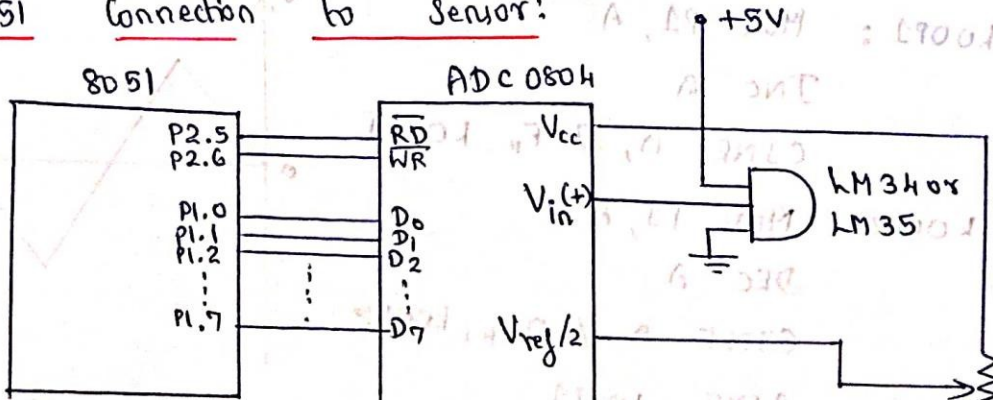 51 Connection to Sensor:
+5V
8051
ADC 0804
P2.5
P2.6
P1.0
P1.1
P1.2
P1.7
RD
WR
D0
D1
D2
D7
Vcc
Vin(+)
Vref/2
LM34 or
LM35